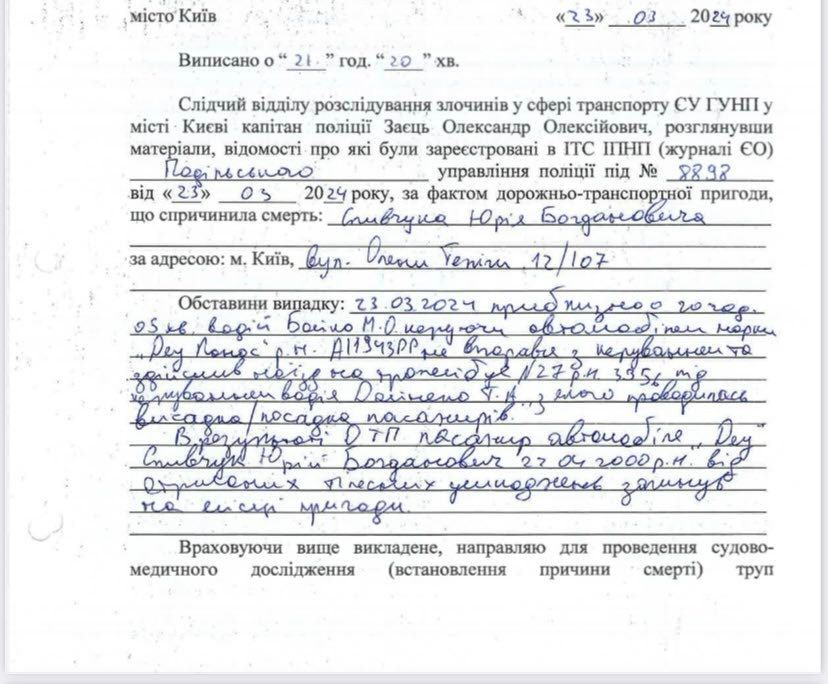 місто Київ «23» 03 2024 року
Виписано о “21” год. “20” хв.
Слідчий відділу розслідування злочинів у сфері транспорту ЄУ ГУНП у
місті Києві капітан поліції Заєць Олександр Олексійович, розглянувши
матеріали, відомості про які були зареєстровані в ІТС ІПНП (журналі ЄО)
Подільського управління поліції під № 8898
від «23» 03 2024 року, за фактом дорожньо-транспортної пригоди,
що спричинила смерть: Співчука Юрія Богдановича
за адресою: м. Київ, вул. Олени Теліги, 12/107
Обставини випадку: 23.03.2024 приблизно о 20 год.
05 хв. водій Бойко М.О. керуючи автомобілем марки
„Деу Ланос" р.н. АІ1943РР не впорався з керуванням та
здійснив наїзд на тролейбус №27 р.н. під
керуванням водія Т.А., з якого проводилась
висадка/посадка пасажирів.
В результаті ДТП пасажир автомобіля „Деу"
Співчук Юрій Богданович 22.04.2000 р.н. від
отриманих тілесних ушкоджень загинув
на місці пригоди.
Враховуючи вище викладене, направляю для проведення судово-
медичного дослідження (встановлення причини смерті) труп